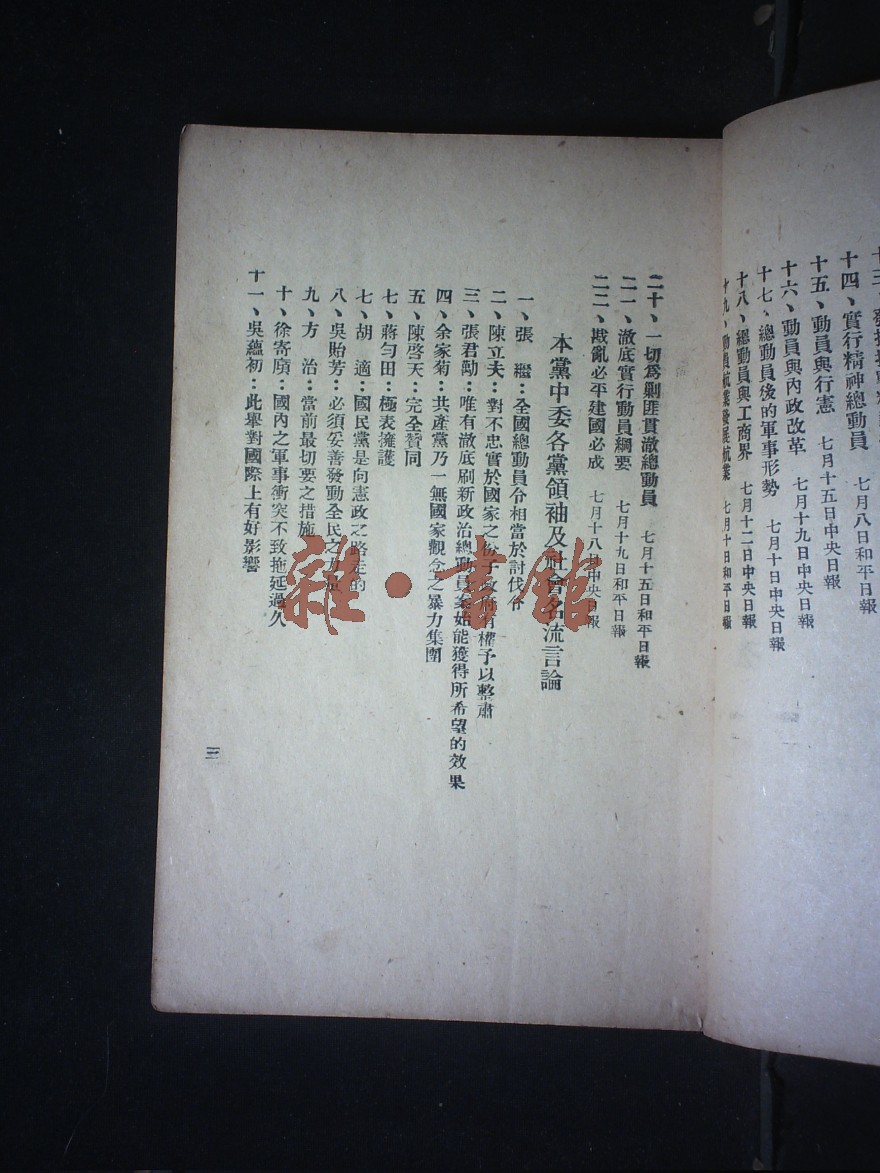 十四、實行精神總動員 七月八日和平日報
十五、動員與行憲 七月十五日中央日報
十六、動員與內政改革 七月十九日中央日報
十七、總動員後的軍事形勢 七月十日中央日報
十八、總動員與工商界 七月十二日中央日報
十九、動員航業發展航業 七月十日和平日報
二十、一切爲剿匪貫澈總動員 七月十五日和平日報
二一、澈底實行動員綱要 七月十九日和平日報
二二、戡亂必平建國必成 七月十八日中央日報
本黨中委各黨領袖及社會名流言論
一、張 繼：全國總動員令相當於討伐令
二、陳立夫：對不忠實於國家之份子政府有權予以整肅
三、張君勱：唯有澈底刷新政治總動員案始能獲得所希望的效果
四、余家菊：共產黨乃一無國家觀念之暴力集團
五、陳啓天：完全贊同
七、蔣勻田：極表擁護
七、胡 適：國民黨是向憲政之路走的
八、吳貽芳：必須妥善發動全民之力量
九、方 治：當前最切要之措施
十、徐寄廎：國內之軍事衝突不致拖延過久
十一、吳蘊初：此舉對國際上有好影響
三
雜·書館